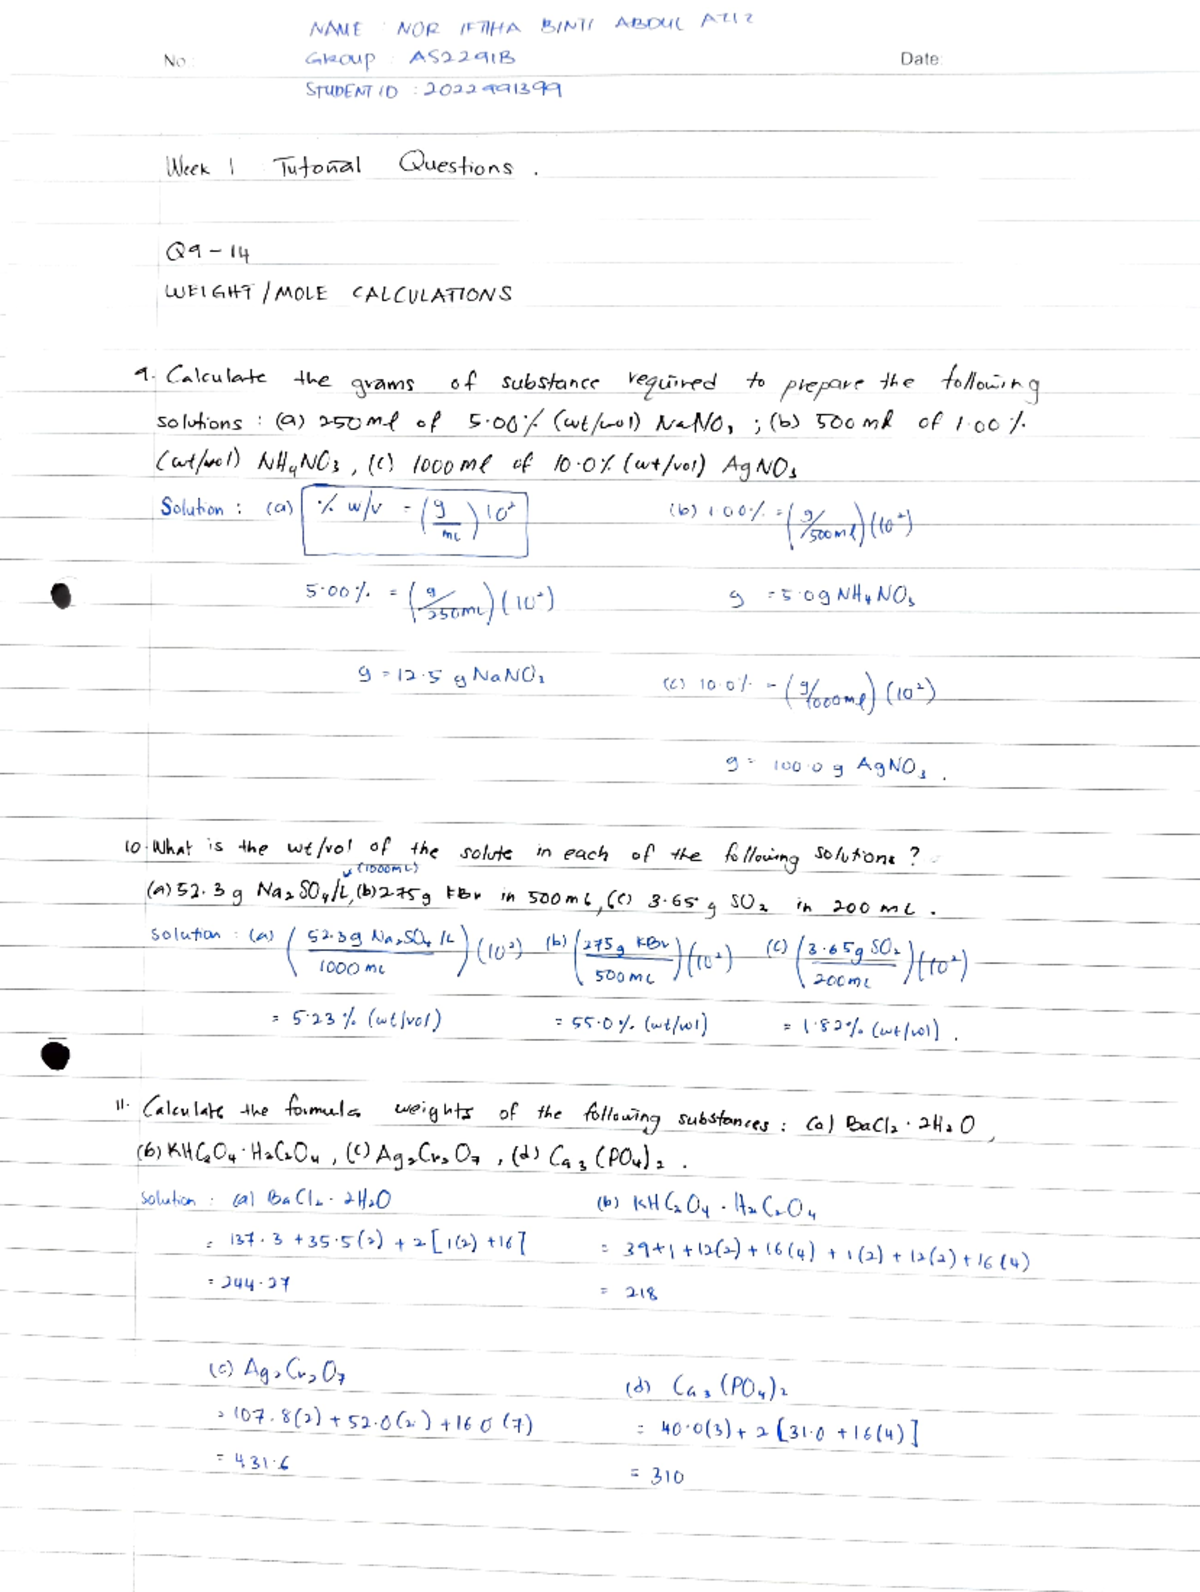 NAME : NOR IFTIHA BINTI ABDUL AZIZ
No: GROUP : AS2291B Date:
STUDENT ID : 2022991399
Week 1 Tutorial Questions.
Q9-14
WEIGHT/MOLE CALCULATIONS
9. Calculate the grams of substance required to prepare the following
solutions : (a) 250ml of 5.00% (wt/vol) NaNO₃ ; (b) 500ml of 1.00%
(wt/vol) NH₄NO₃, (c) 1000ml of 10.0% (wt/vol) AgNO₃
Solution : (a) % w/v = (g/mL) 10² (b) 1.00% = (g/500ml)(10²)
5.00% = (g/250mL)(10²) g = 5.0g NH₄NO₃
g = 12.5 g NaNO₃ (c) 10.0% = (g/1000ml)(10²)
g = 100.0 g AgNO₃.
10. What is the wt/vol of the solute in each of the following solutions ?
(1000mL)
(a) 52.3 g Na₂SO₄/L, (b) 275g KBr in 500mL, (c) 3.65 g SO₂ in 200 mL.
solution : (a) (52.3g Na₂SO₄/L / 1000mL)(10²) (b) (275g KBr / 500mL)(10²) (c) (3.65g SO₂ / 200mL)(10²)
= 5.23% (wt/vol) = 55.0% (wt/vol) = 1.82% (wt/vol).
11. Calculate the formula weights of the following substances : (a) BaCl₂ · 2H₂O,
(b) KHC₂O₄ · H₂C₂O₄, (c) Ag₂Cr₂O₇, (d) Ca₃(PO₄)₂.
solution : (a) BaCl₂ · 2H₂O (b) KHC₂O₄ · H₂C₂O₄
= 137.3 + 35.5(2) + 2[1(2) + 16] = 39+1+12(2)+16(4)+1(2)+12(2)+16(4)
= 244.27 = 218
(c) Ag₂Cr₂O₇ (d) Ca₃(PO₄)₂
= 107.8(2) + 52.0(2) + 16.0(7) = 40.0(3) + 2[31.0 + 16(4)]
= 431.6 = 310